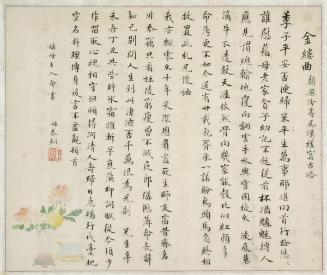 金縷曲 顧梁汾寄吳漢槎寧古塔
季子平安否便歸來平生萬事那堪回首行路悠悠
誰慰藉母老家貧子幼記不起從前杯酒魑魅搏人
應見慣總輸他覆雨翻雲手冰與雪周旋久 淚痕莫
滴牛衣透數天涯依然骨肉幾家能彀比似紅顏多
命薄更不如今還有廿載包胥承一諾盼烏頭馬角終相
救置此札兄懷袖
我亦飄零久十年來深恩負盡死生師友宿昔齊名
非忝竊只看杜陵窮瘦曾不減夜郎僝僽薄命長辭
知己別問人生到此淒涼否千萬恨為兄剖 兄生辛
未吾丁丑共些時冰霜摧折早衰蒲柳詞賦從今須少
作留取心魂相守但願得河清人壽歸日急繙行戍稿把
空名料理傳身後言不盡觀頓首
姑母大人命書
姪